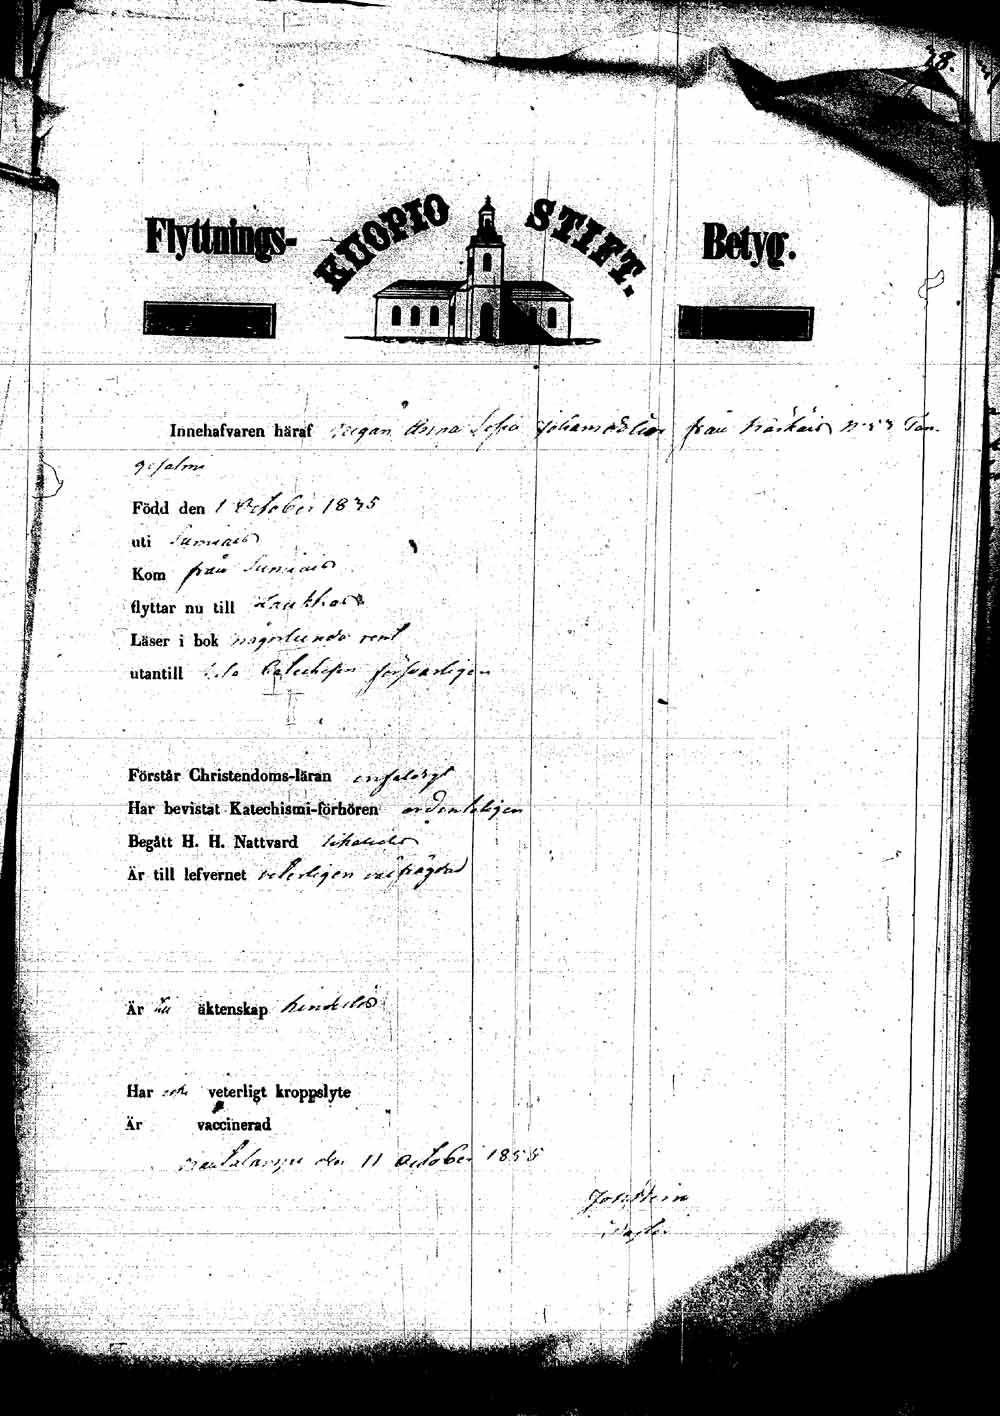 28.
Flyttnings- KUOPIO STIFT. Betyg.
Innehafvaren häraf Pigan Anna Sofia Johansdotter från
Född den 1 October 1835
uti Sumiais
Kom från Sumiais
flyttar nu till Laukkas
Läser i bok någorlunda rent
utantill Catechesen försvarligen
Förstår Christendoms-läran enfaldigt
Har bevistat Katechismi-förhören ordenteligen
Begått H. H. Nattvard likaledes
Är till lefvernet veterligen oåfrägdad
Är till äktenskap hinderlös
Har veterligt kroppslyte
Är vaccinerad
den 11 October 1855